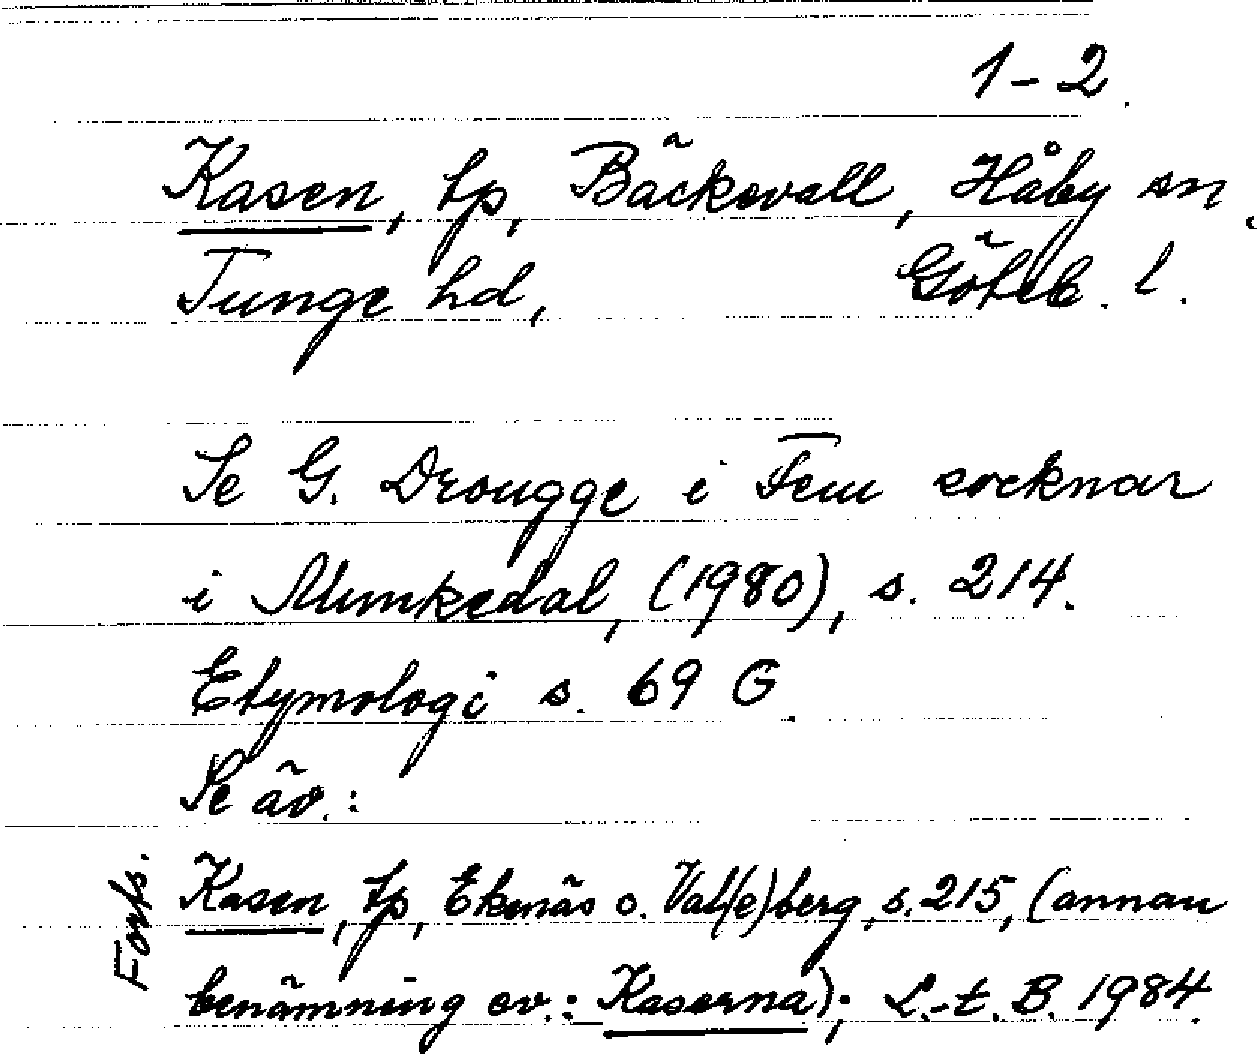 1-2.
Kasen, tp, Bäckevall, Håby sn.
Tunge hd, Göteb. l.
Se G. Drougge i Fem socknar
i Munkedal, (1980), s. 214.
Etymologi s. 69 G.
Se äv.:
Kasen, tp, Ekenäs o. Val(e)berg, s. 215, (annan
benämning ev.: Kaserna); L.-t. B. 1984.
Forts.